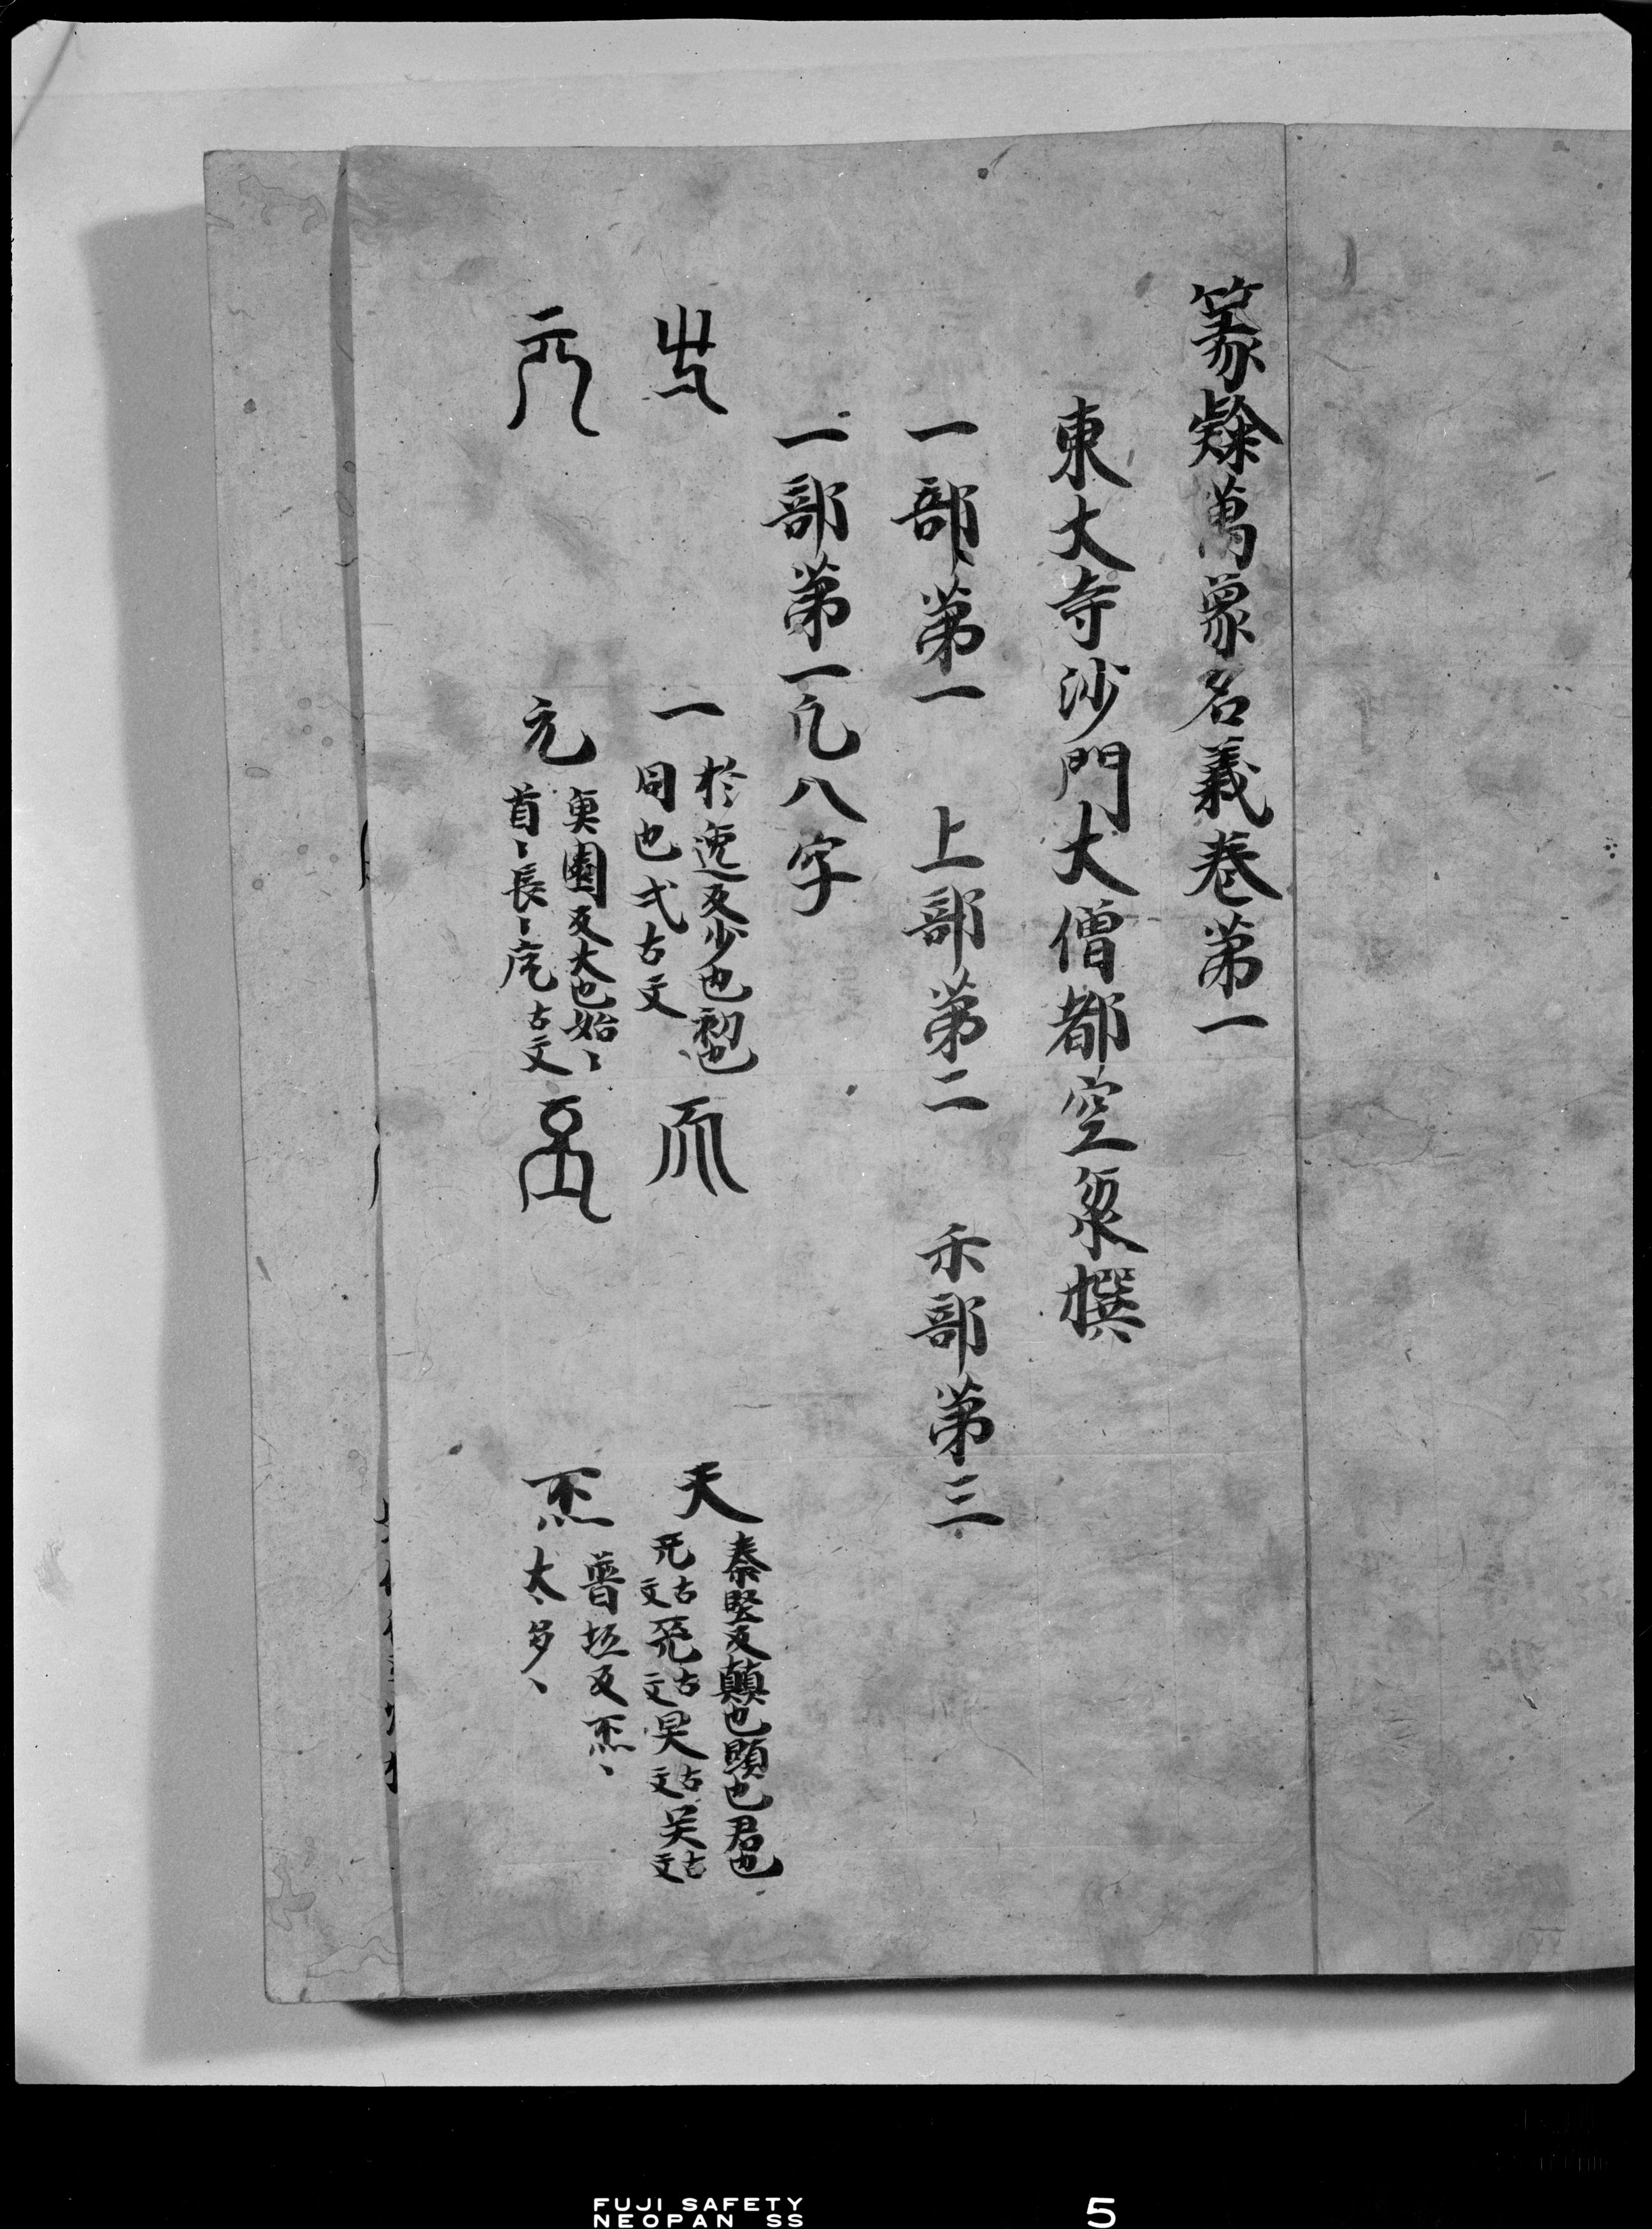 篆隸萬象名義卷第一
東大寺沙門大僧都空海撰
一部第一　上部第二　示部第三
一部第一凡八字
一　於逸反少也初也同也弌古文
天　泰堅反顛也顯也君也兂古文兲古文昊古文关古文
元　奠園反大也始〻首〻長〻㡯古文
丕　普坯反丕〻大〻多〻
FUJI SAFETY
NEOPAN SS
5